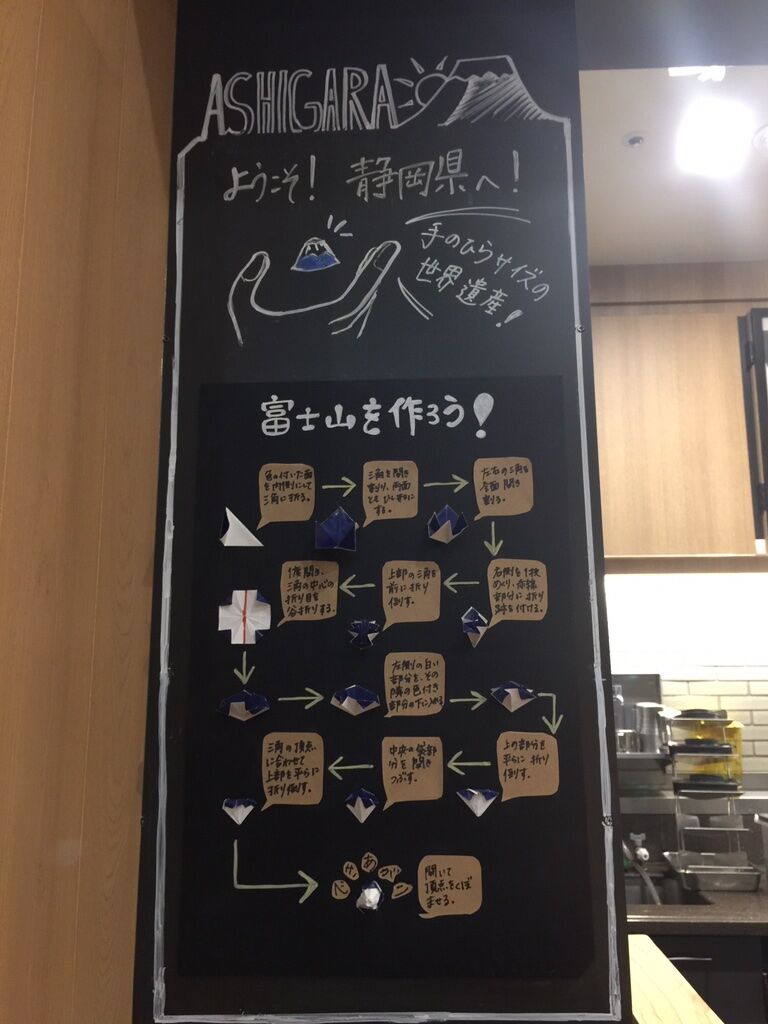 ASHIGARA
ようこそ! 静岡県へ!
手のひらサイズの
世界遺産!
富士山を作ろう!
色の付いた面
を内側にして
三角に折る。
三角を開き
割り、両面
ともひし形に
する。
左右の三角を
全面開き
割る。
右側を1枚
めくり、赤線
部分に折り
跡を付ける。
上部の三角を
前に折り
倒す。
1度開き、
三角の中心の
折り目を
谷折りする。
左側の白い
部分を、その
隣の色付き
部分の下に入れる
上の部分を
平らに折り
倒す。
中央の袋部
分を開き
つぶす。
三角の頂点
に合わせて
上部を平らに
折り倒す。
開いて
頂点をくぼ
ませる。